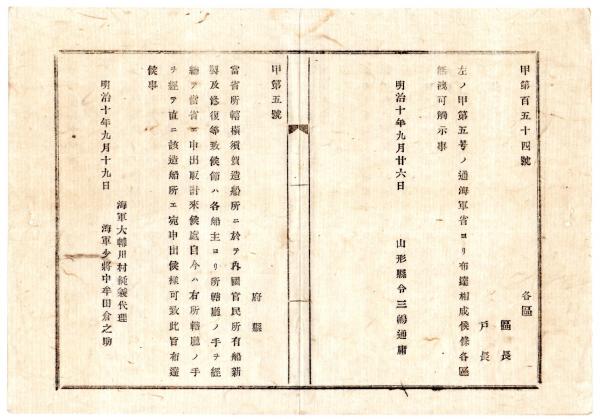 甲第百五十四號
各區
區長
戸長
左ノ甲第五号ノ通海軍省ヨリ布達相成候條各區
無洩可觸示事
明治十年九月廿六日
山形縣令三島通庸
甲第五號
府縣
當省所轄横須賀造船所ニ於テ内國官民所有船新
製及修復等致候節ハ各船主ヨリ所轄廳ノ手ヲ經
總テ當省エ申出取計來候處自今ハ右所轄廳ノ手
ヲ經テ直ニ該造船所エ宛申出候様可致此旨布達
候事
明治十年九月十九日
海軍大輔川村純義代理
海軍少將中牟田倉之助